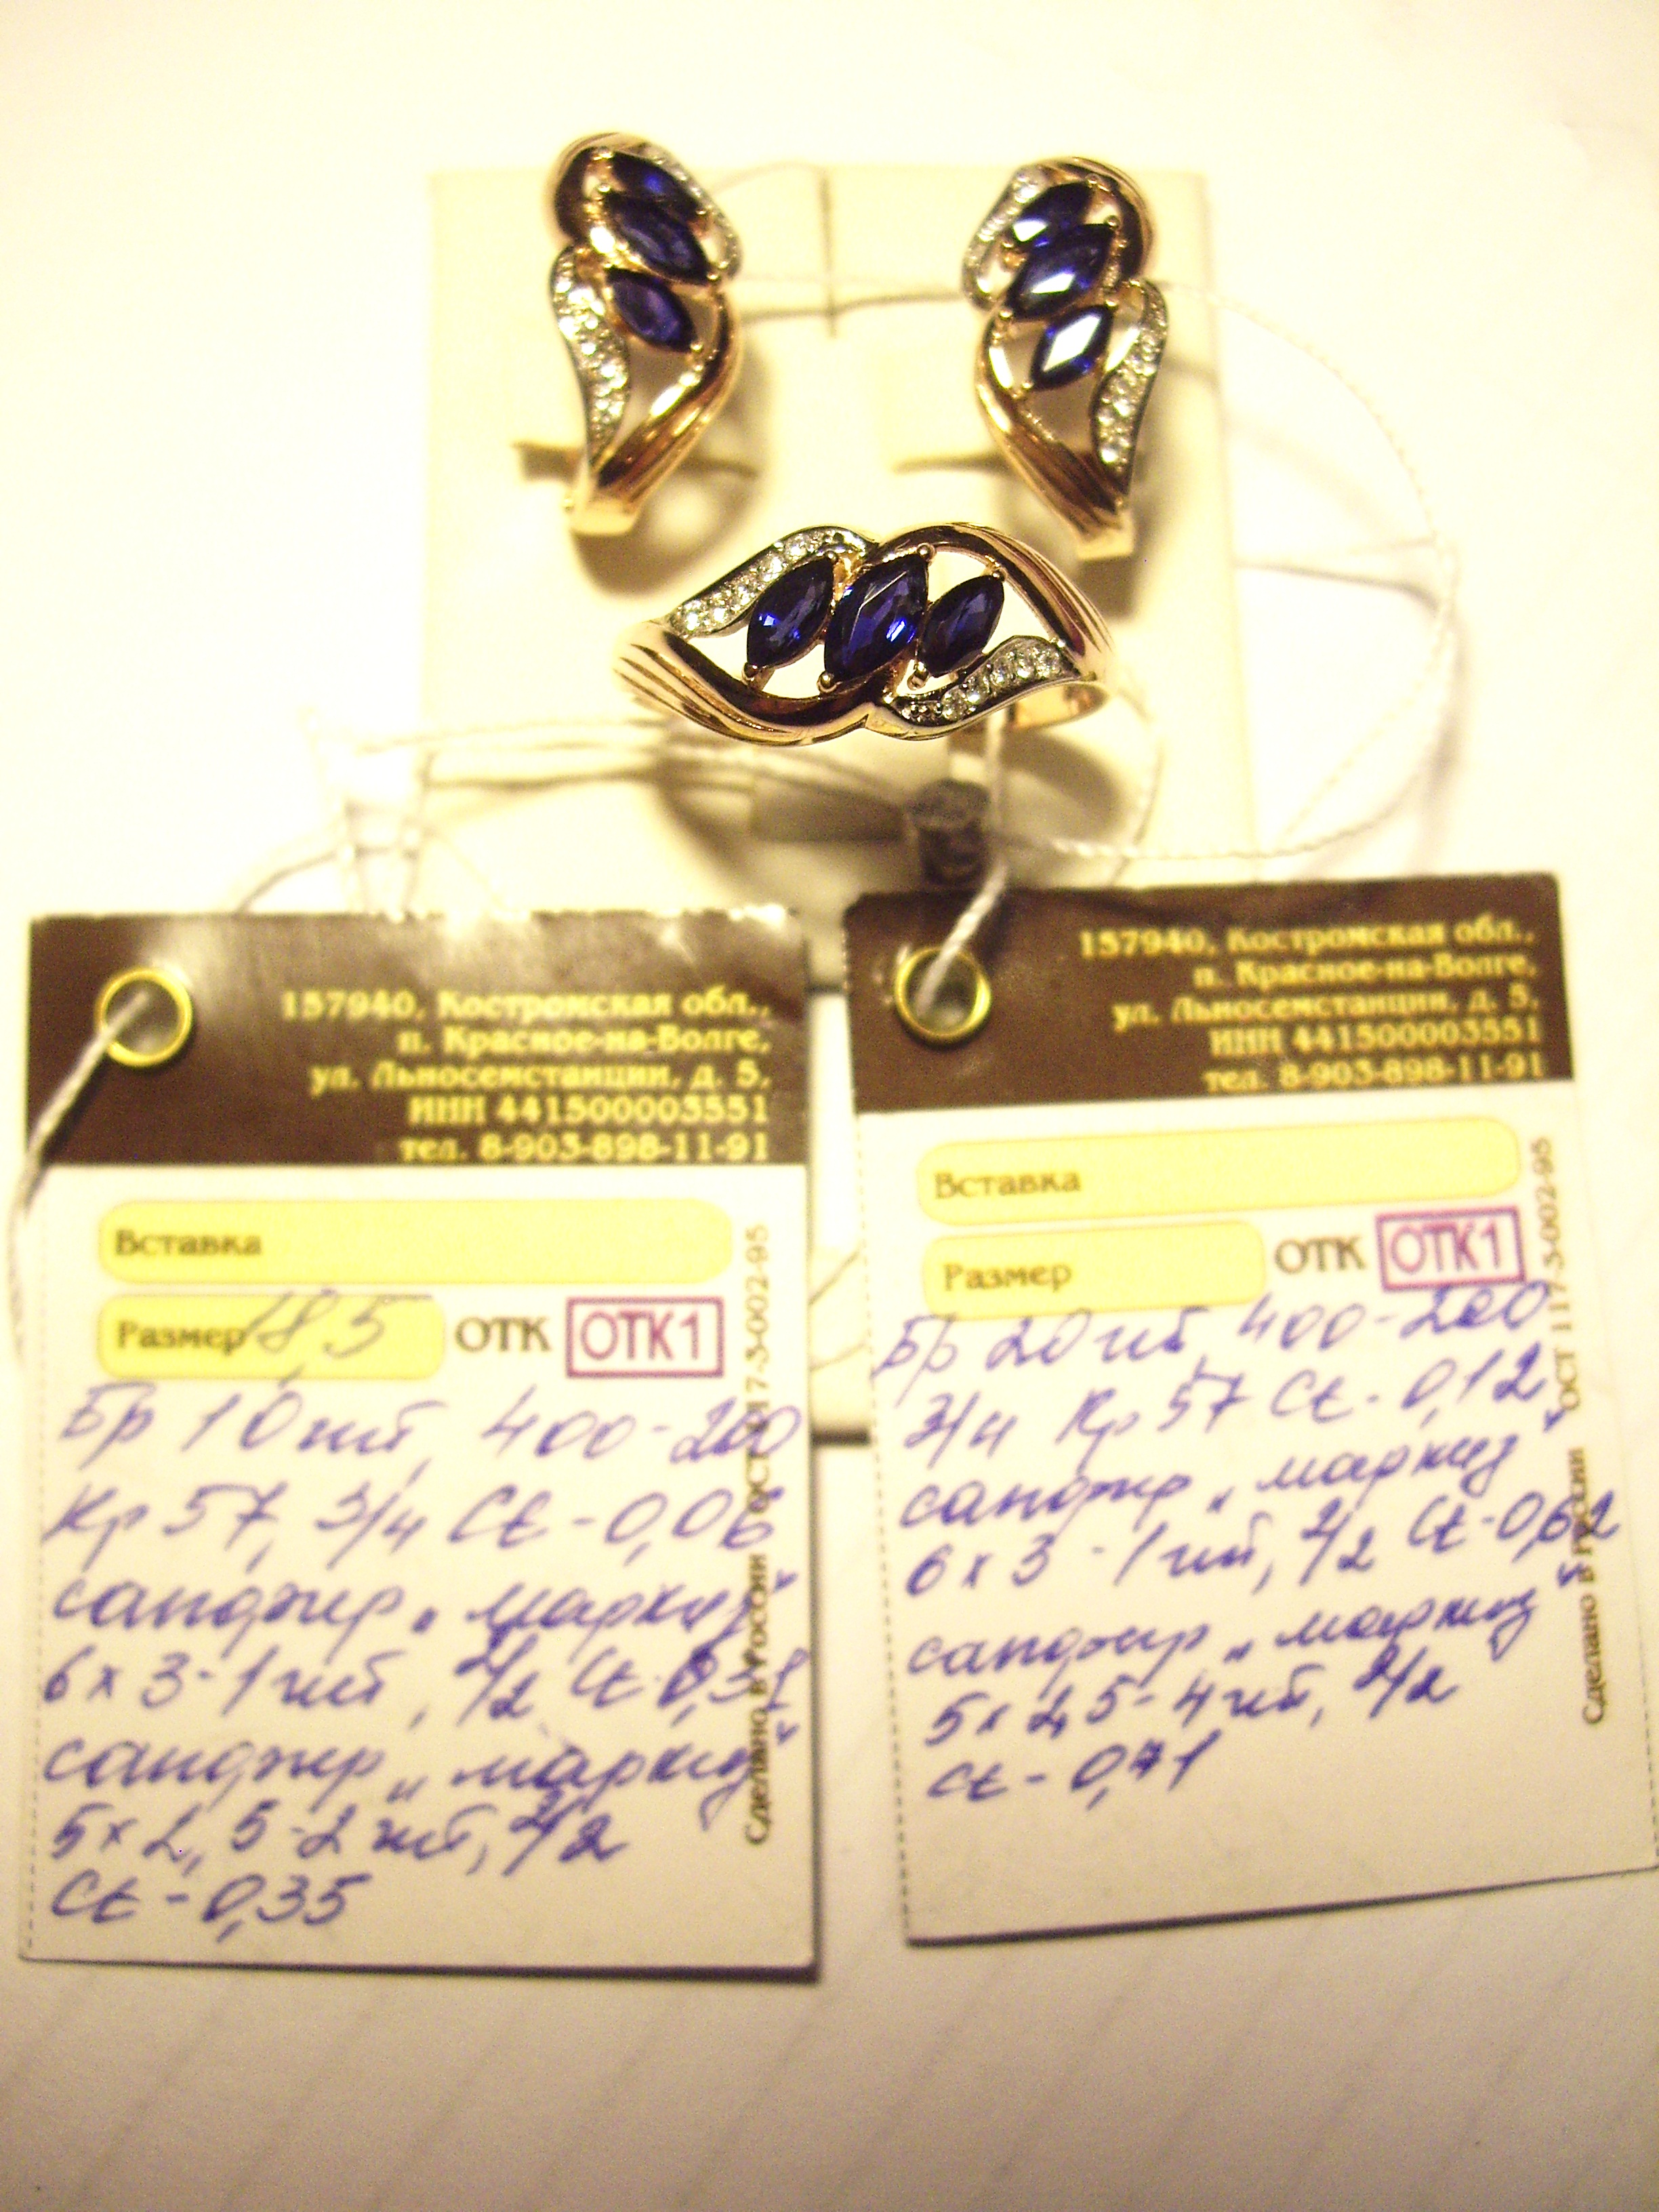 157940, Костромская обл.,
п. Красное-на-Волге,
ул. Льносемстанции, д. 5,
ИНН 441500003551
тел. 8-903-898-11-91
Вставка
Размер 18,5 ОТК ОТК1
Бр 10 шт, 400-200
Кр 57, 3/4 Ct - 0,06
сапфир „маркиз"
6х3-1 шт, 2/2 Ct-0,31
сапфир „маркиз"
5х2,5-2 шт, 2/2
Ct - 0,35
Сделано в России ОСТ 117-3-002-95
157940, Костромская обл.,
п. Красное-на-Волге,
ул. Льносемстанции, д. 5,
ИНН 441500003551
тел. 8-903-898-11-91
Вставка
Размер ОТК ОТК1
Бр 20 шт, 400-200
3/4 Кр 57 Ct - 0,12
сапфир „маркиз"
6х3 -1 шт, 2/2 Ct-0,62
сапфир „маркиз"
5х2,5-4 шт, 2/2
Ct - 0,71
Сделано в России ОСТ 117-3-002-95